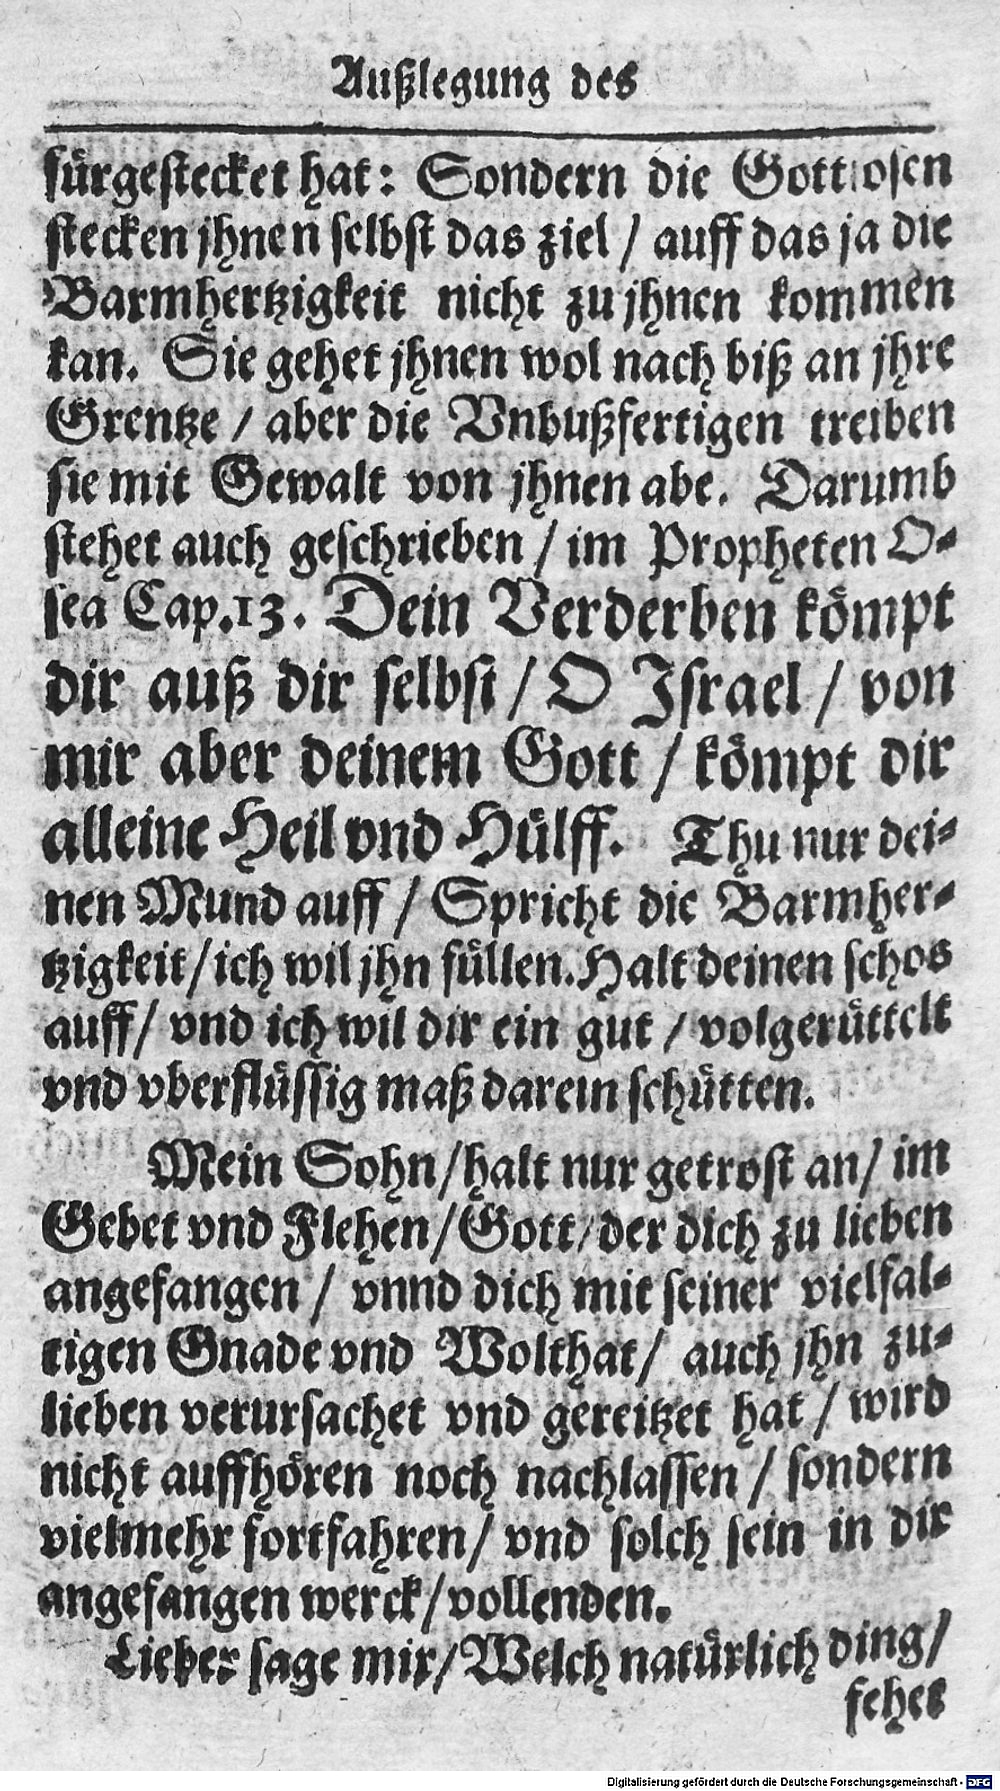 Außlegung des
fürgestecket hat: Sondern die Gottlosen
stecken jhnen selbst das ziel / auff das ja die
Barmhertzigkeit nicht zu jhnen kommen
kan. Sie gehet jhnen wol nach biß an jhre
Grentze / aber die Vnbußfertigen treiben
sie mit Gewalt von jhnen abe. Darumb
stehet auch geschrieben / im Propheten O-
sea Cap. 13. Dein Verderben kömpt
dir auß dir selbst / O Israel / von
mir aber deinem Gott / kömpt dir
alleine Heil vnd Hülff. Thu nur dei-
nen Mund auff / Spricht die Barmher-
tzigkeit / ich wil jhn füllen. Halt deinen schos
auff / vnd ich wil dir ein gut / volgerüttelt
vnd vberflüssig maß darein schütten.
Mein Sohn / halt nur getrost an / im
Gebet vnd Flehen / Gott / der dich zu lieben
angefangen / vnnd dich mit seiner vielfal-
tigen Gnade vnd Wolthat / auch jhn zu-
lieben verursachet vnd gereitzet hat / wird
nicht auffhören noch nachlassen / sondern
vielmehr fortfahren / vnd solch sein in dir
angefangen werck / vollenden.
Lieber sage mir / Welch natürlich ding /
fehet
Digitalisierung gefördert durch die Deutsche Forschungsgemeinschaft - DFG